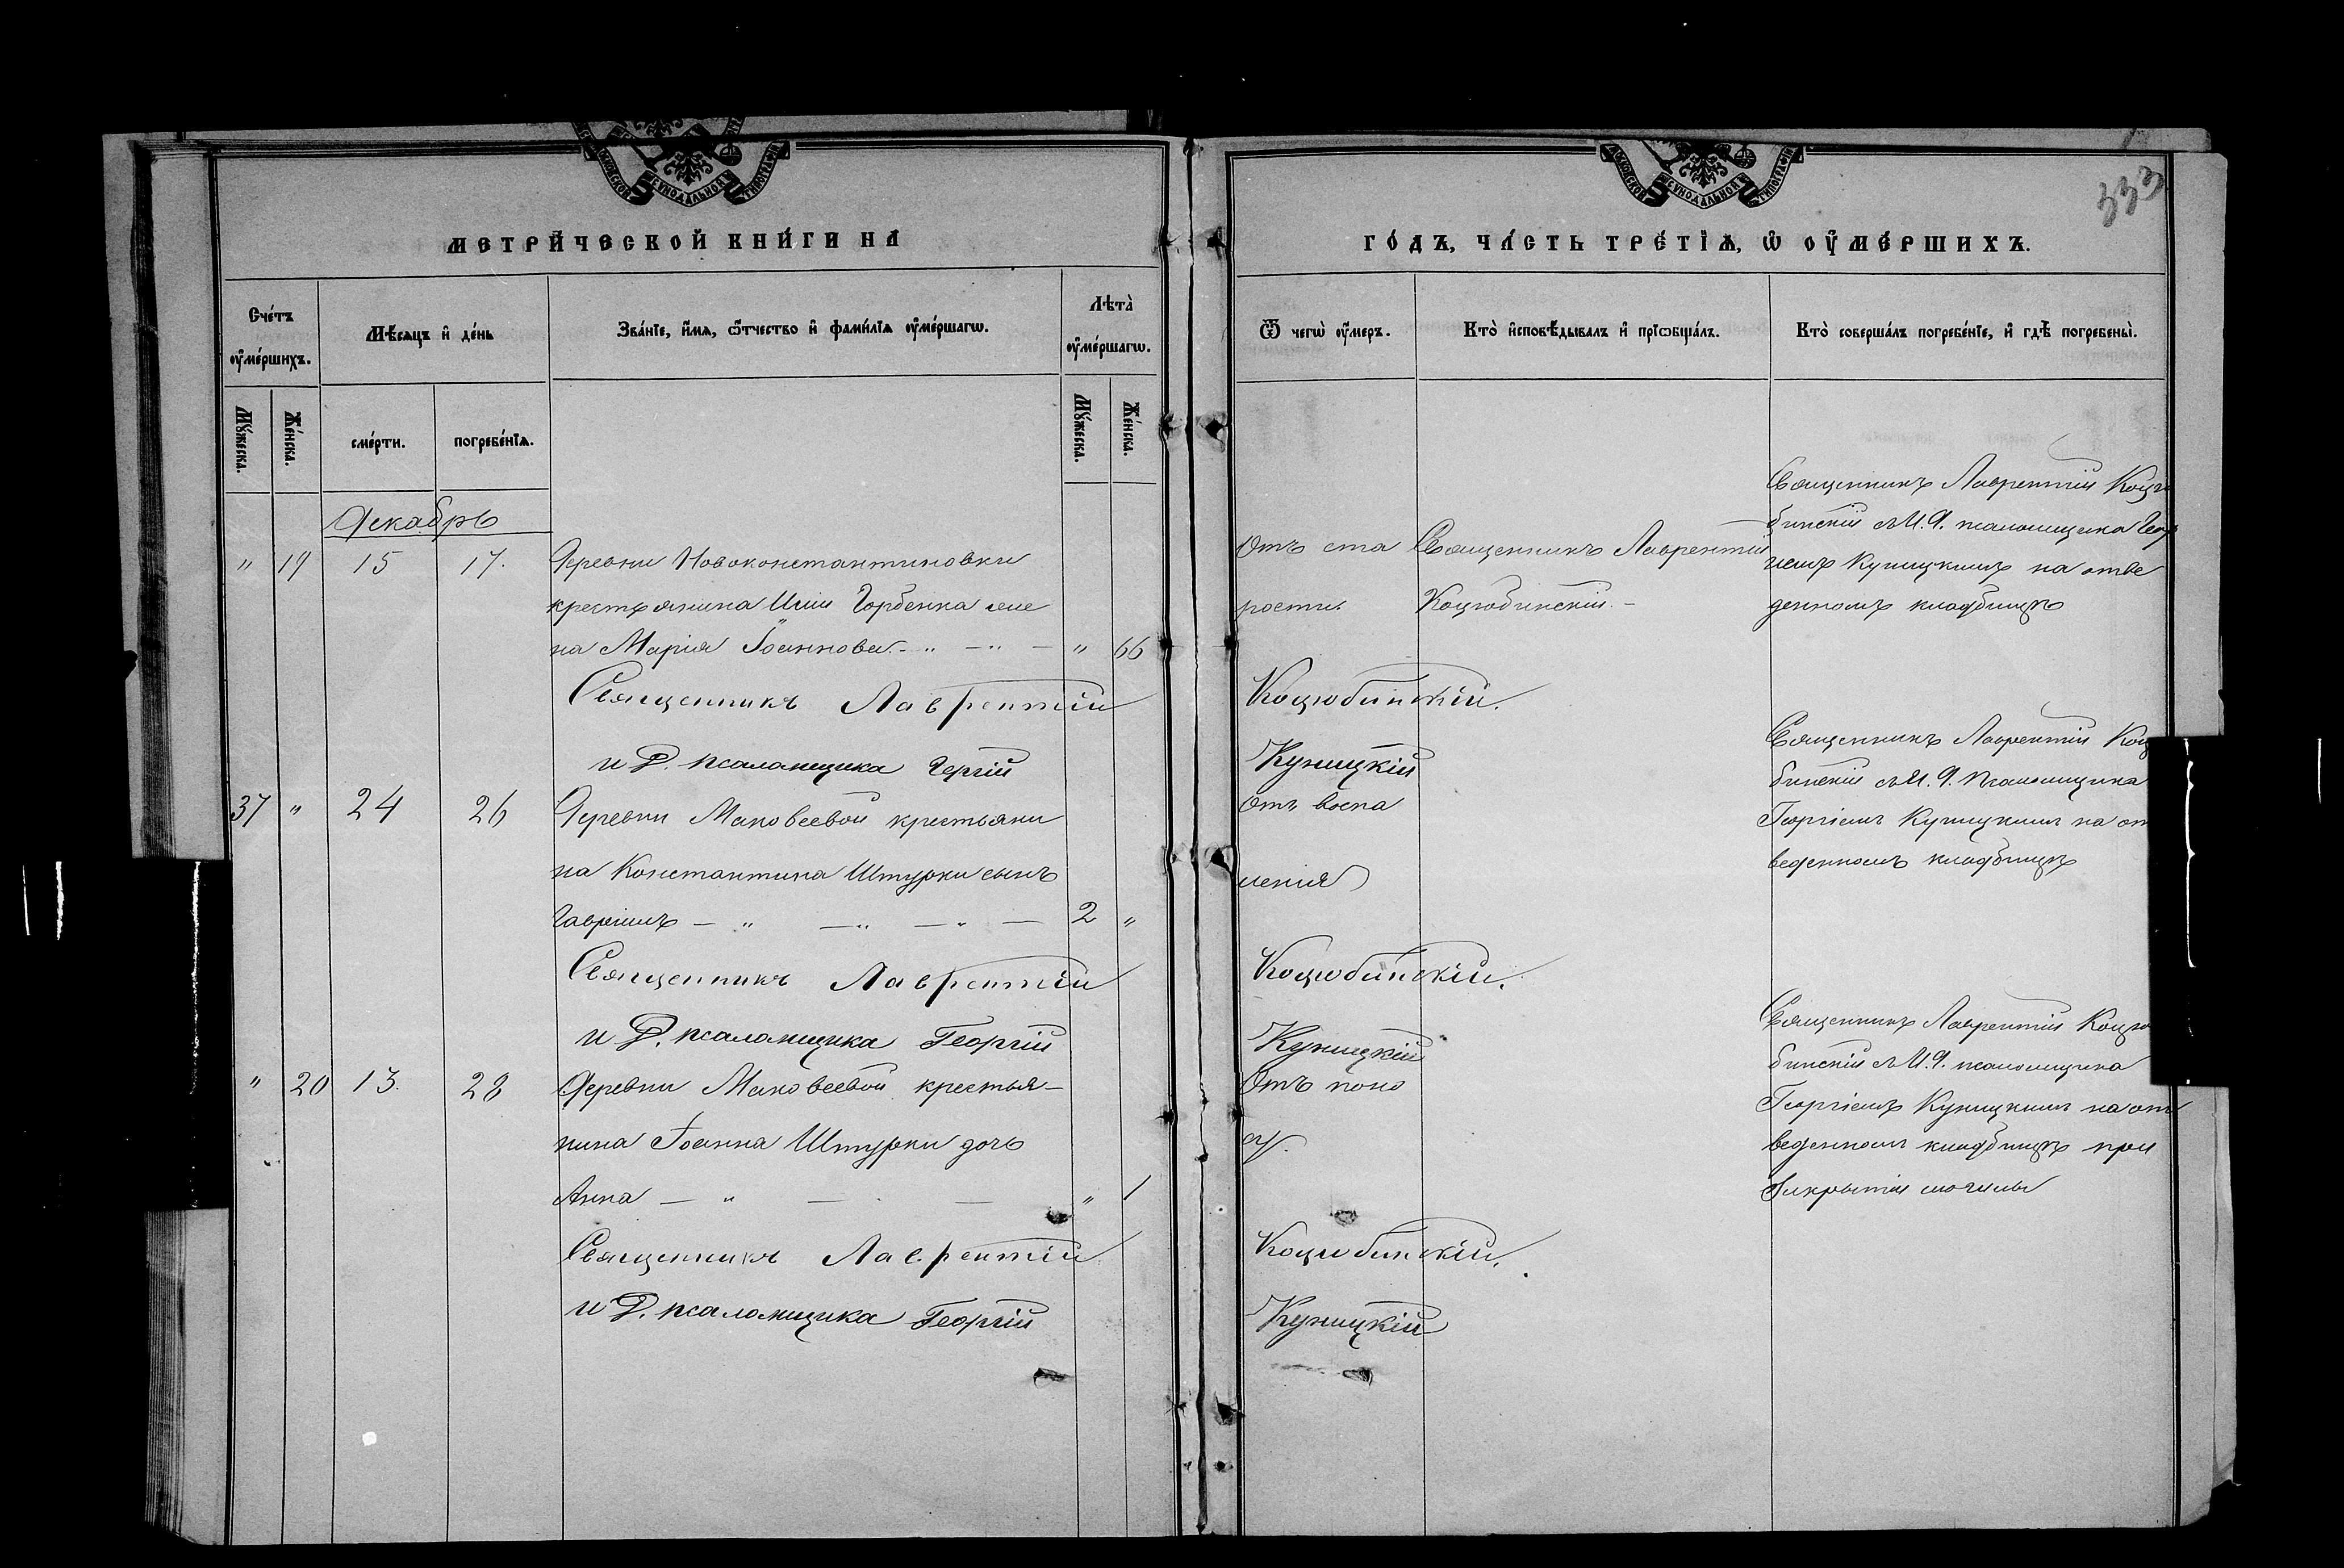 МОСКОВСКОЙ СѴНОДАЛЬНОЙ ТИПОГРАФІИ
МОСКОВСКОЙ СѴНОДАЛЬНОЙ ТИПОГРАФІИ
333
МЕТРИ́ЧЕСКОЙ КНИ́ГИ НА
ГО́ДЪ, ЧА́СТЬ ТРЕ́ТІѦ, Ѡ ОУМЕ́РШИХЪ.
Сче́тъ оуме́ршихъ.
Мꙋ́жеска.
Же́нска.
Мѣ́сяцъ и де́нь
сме́рти.
погребе́нїѧ.
Зва́нїе, и́мѧ, ѻ҆́тчество и фами́лїѧ оуме́ршагѡ.
Лѣта̀ оуме́ршагѡ.
Мꙋ́жеска.
Же́нска.
Ѿ чегѡ̀ оу́меръ.
Кто̀ исповѣ́дывалъ и прїѡбща́лъ.
Кто̀ соверша́лъ погребе́нїе, и гдѣ̀ погребены̀.
Декабрь
" 19 15 17.
Деревни Новоконстантиновки
крестьянина Иліи Горбенка же
на Марія Іоаннова - " - " - " 66
Отъ ста
рости.
Священникъ Лаврентій
Коцюбинскій. -
Священникъ Лаврентій Коцю
бинскій съ И. Д. псаломщика Геор
гіемъ Куницкимъ на отве
денномъ кладбищѣ
Священникъ Лаврентій Коцюбинскій.
и Д. псаломщика Гергій Куницкій
37 " 24 26
Деревни Маковеевой крестьяни
на Константина Штурки сынъ
Гавріилъ - " - " - " - 2 "
Отъ воспа
ленія
Священникъ Лаврентій Коц
бинскій съ И. Д. Псаломщика
Георгіемъ Куницкимъ на от
веденномъ кладбищѣ
Священникъ Лаврентій Коцюбинскій.
и Д. псаломщика Георгій Куницкій
" 20 13. 28
Деревни Маковеевой крестья-
нина Іоанна Штурки дочь
Анна - " - - " 1
Отъ поно
су.
Священникъ Лаврентій Коцю
бинскій съ И. Д. псаломщика
Георгіемъ Куницкимъ на от
веденномъ кладбищѣ при
закрытіи могилы
Священникъ Лаврентій Коцюбинскій.
и Д. псаломщика Георгій Куницкій